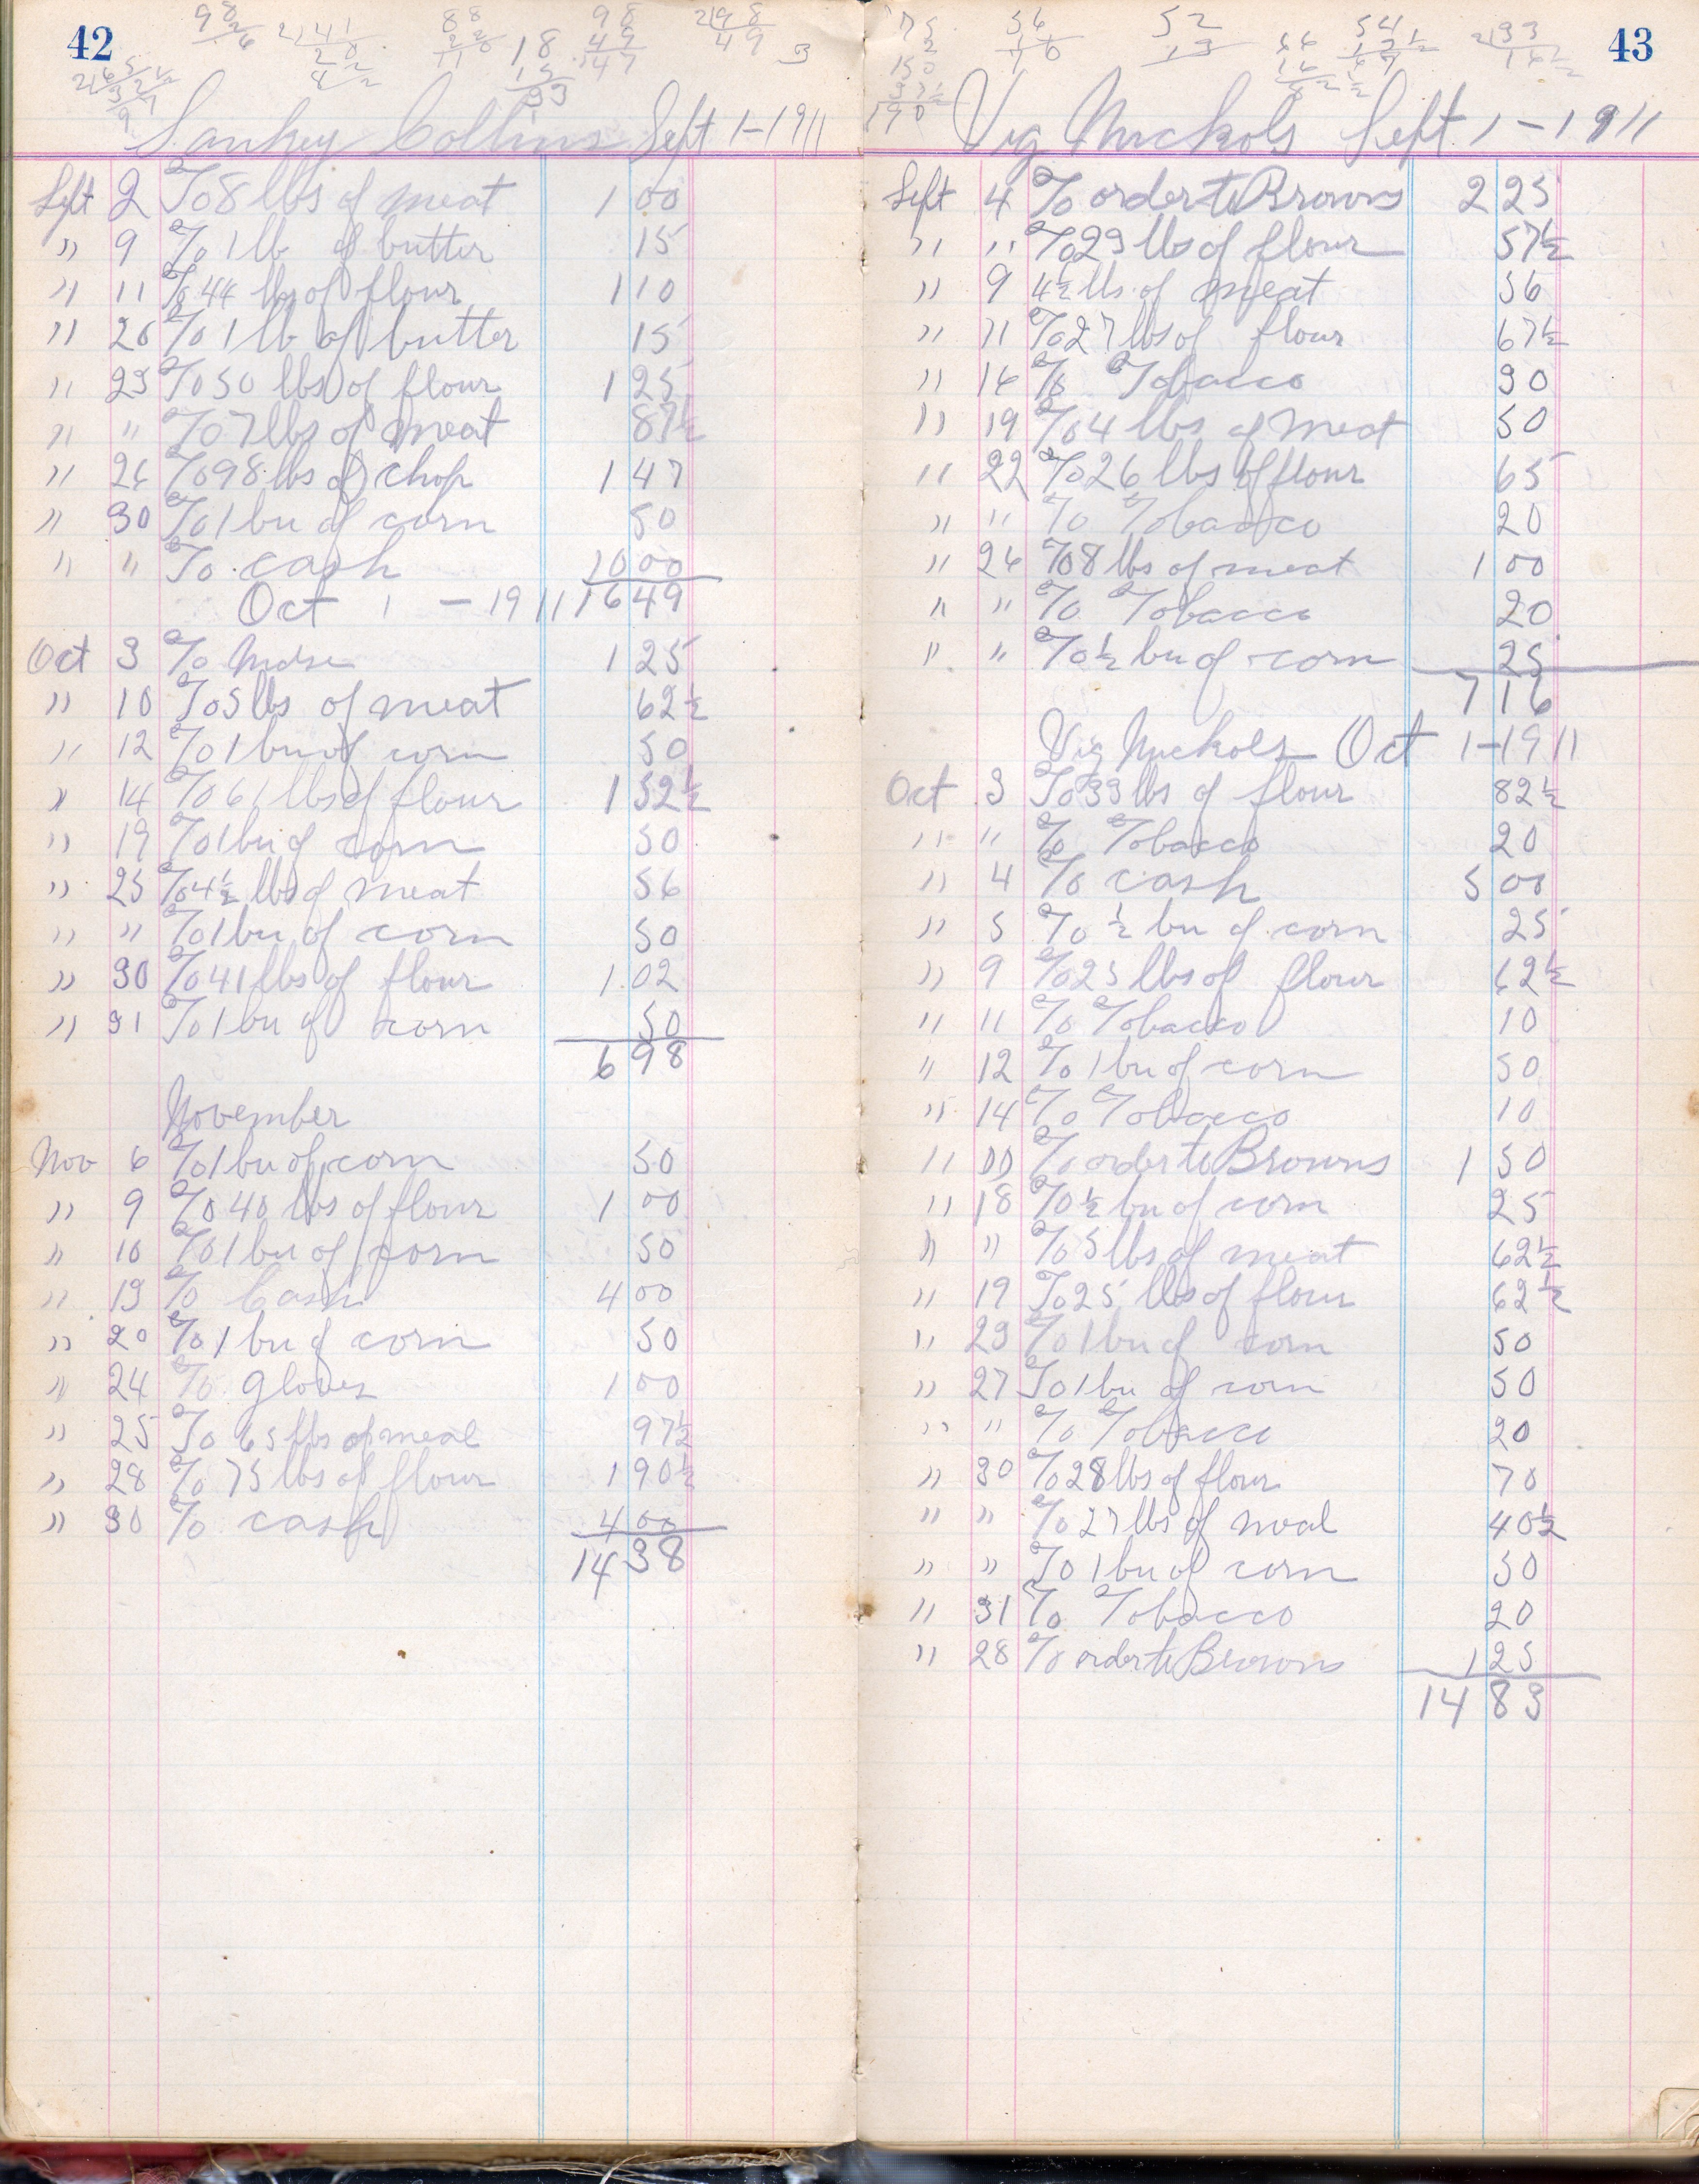 42
98
2
2)41
20
2
88
2
18
15
33
98
49
147
2)98
49
3
2)65
Sankey Collins Sept 1-1911
Sept 2 To 8 lbs of meat 1 00
" 9 To 1 lb of butter 15
" 11 To 44 lbs of flour 1 10
" 20 To 1 lb of butter 15
" 23 To 50 lbs of flour 1 25
" " To 7 lbs of meat 87½
" 26 To 98 lbs of chop 1 47
" 30 To 1 bu of corn 50
" " To cash 10 00
Oct 1 - 1911 16 49
Oct 3 To 1 25
" 10 To 5 lbs of meat 62½
" 12 To 1 bu of corn 50
" 14 To 61 lbs of flour 1 52½
" 19 To 1 bu of corn 50
" 25 To 4½ lbs of meat 56
" " To 1 bu of corn 50
" 30 To 41 lbs of flour 1 02
" 31 To 1 bu of corn 50
6 98
November
Nov 6 To 1 bu of corn 50
" 9 To 40 lbs of flour 1 00
" 10 To 1 bu of corn 50
" 13 To Cash 4 00
" 20 To 1 bu of corn 50
" 24 To gloves 1 00
" 25 To 65 lbs of meal 97½
" 28 To 75 lbs of flour 1 90½
" 30 To cash 4 00
14 38
43
75
2
150
37½
190
56
52
13
54
2)33
16½
Vig Nuckols Sept 1-1911
Sept 4 To order to Browns 2 25
" " To 23 lbs of flour 57½
" 9 4½ lbs of meat 56
" 11 To 27 lbs of flour 67½
" 16 To Tobacco 30
" 19 To 4 lbs of meat 50
" 22 To 26 lbs of flour 65
" " To Tobacco 20
" 26 To 8 lbs of meat 1 00
" " To Tobacco 20
" " To ½ bu of corn 25
7 16
Vig Nuckols Oct 1-1911
Oct 3 To 33 lbs of flour 82½
" " To Tobacco 20
" 4 To cash 5 00
" 5 To ½ bu of corn 25
" 9 To 25 lbs of flour 62½
" 11 To Tobacco 10
" 12 To 1 bu of corn 50
" 14 To Tobacco 10
" " To order to Browns 1 50
" 18 To ½ bu of corn 25
" " To 5 lbs of meat 62½
" 19 To 25 lbs of flour 62½
" 23 To 1 bu of corn 50
" 27 To 1 bu of corn 50
" " To Tobacco 20
" 30 To 28 lbs of flour 70
" " To 27 lbs of meal 40½
" " To 1 bu of corn 50
" 31 To Tobacco 20
" 28 To order to Browns 1 25
14 83